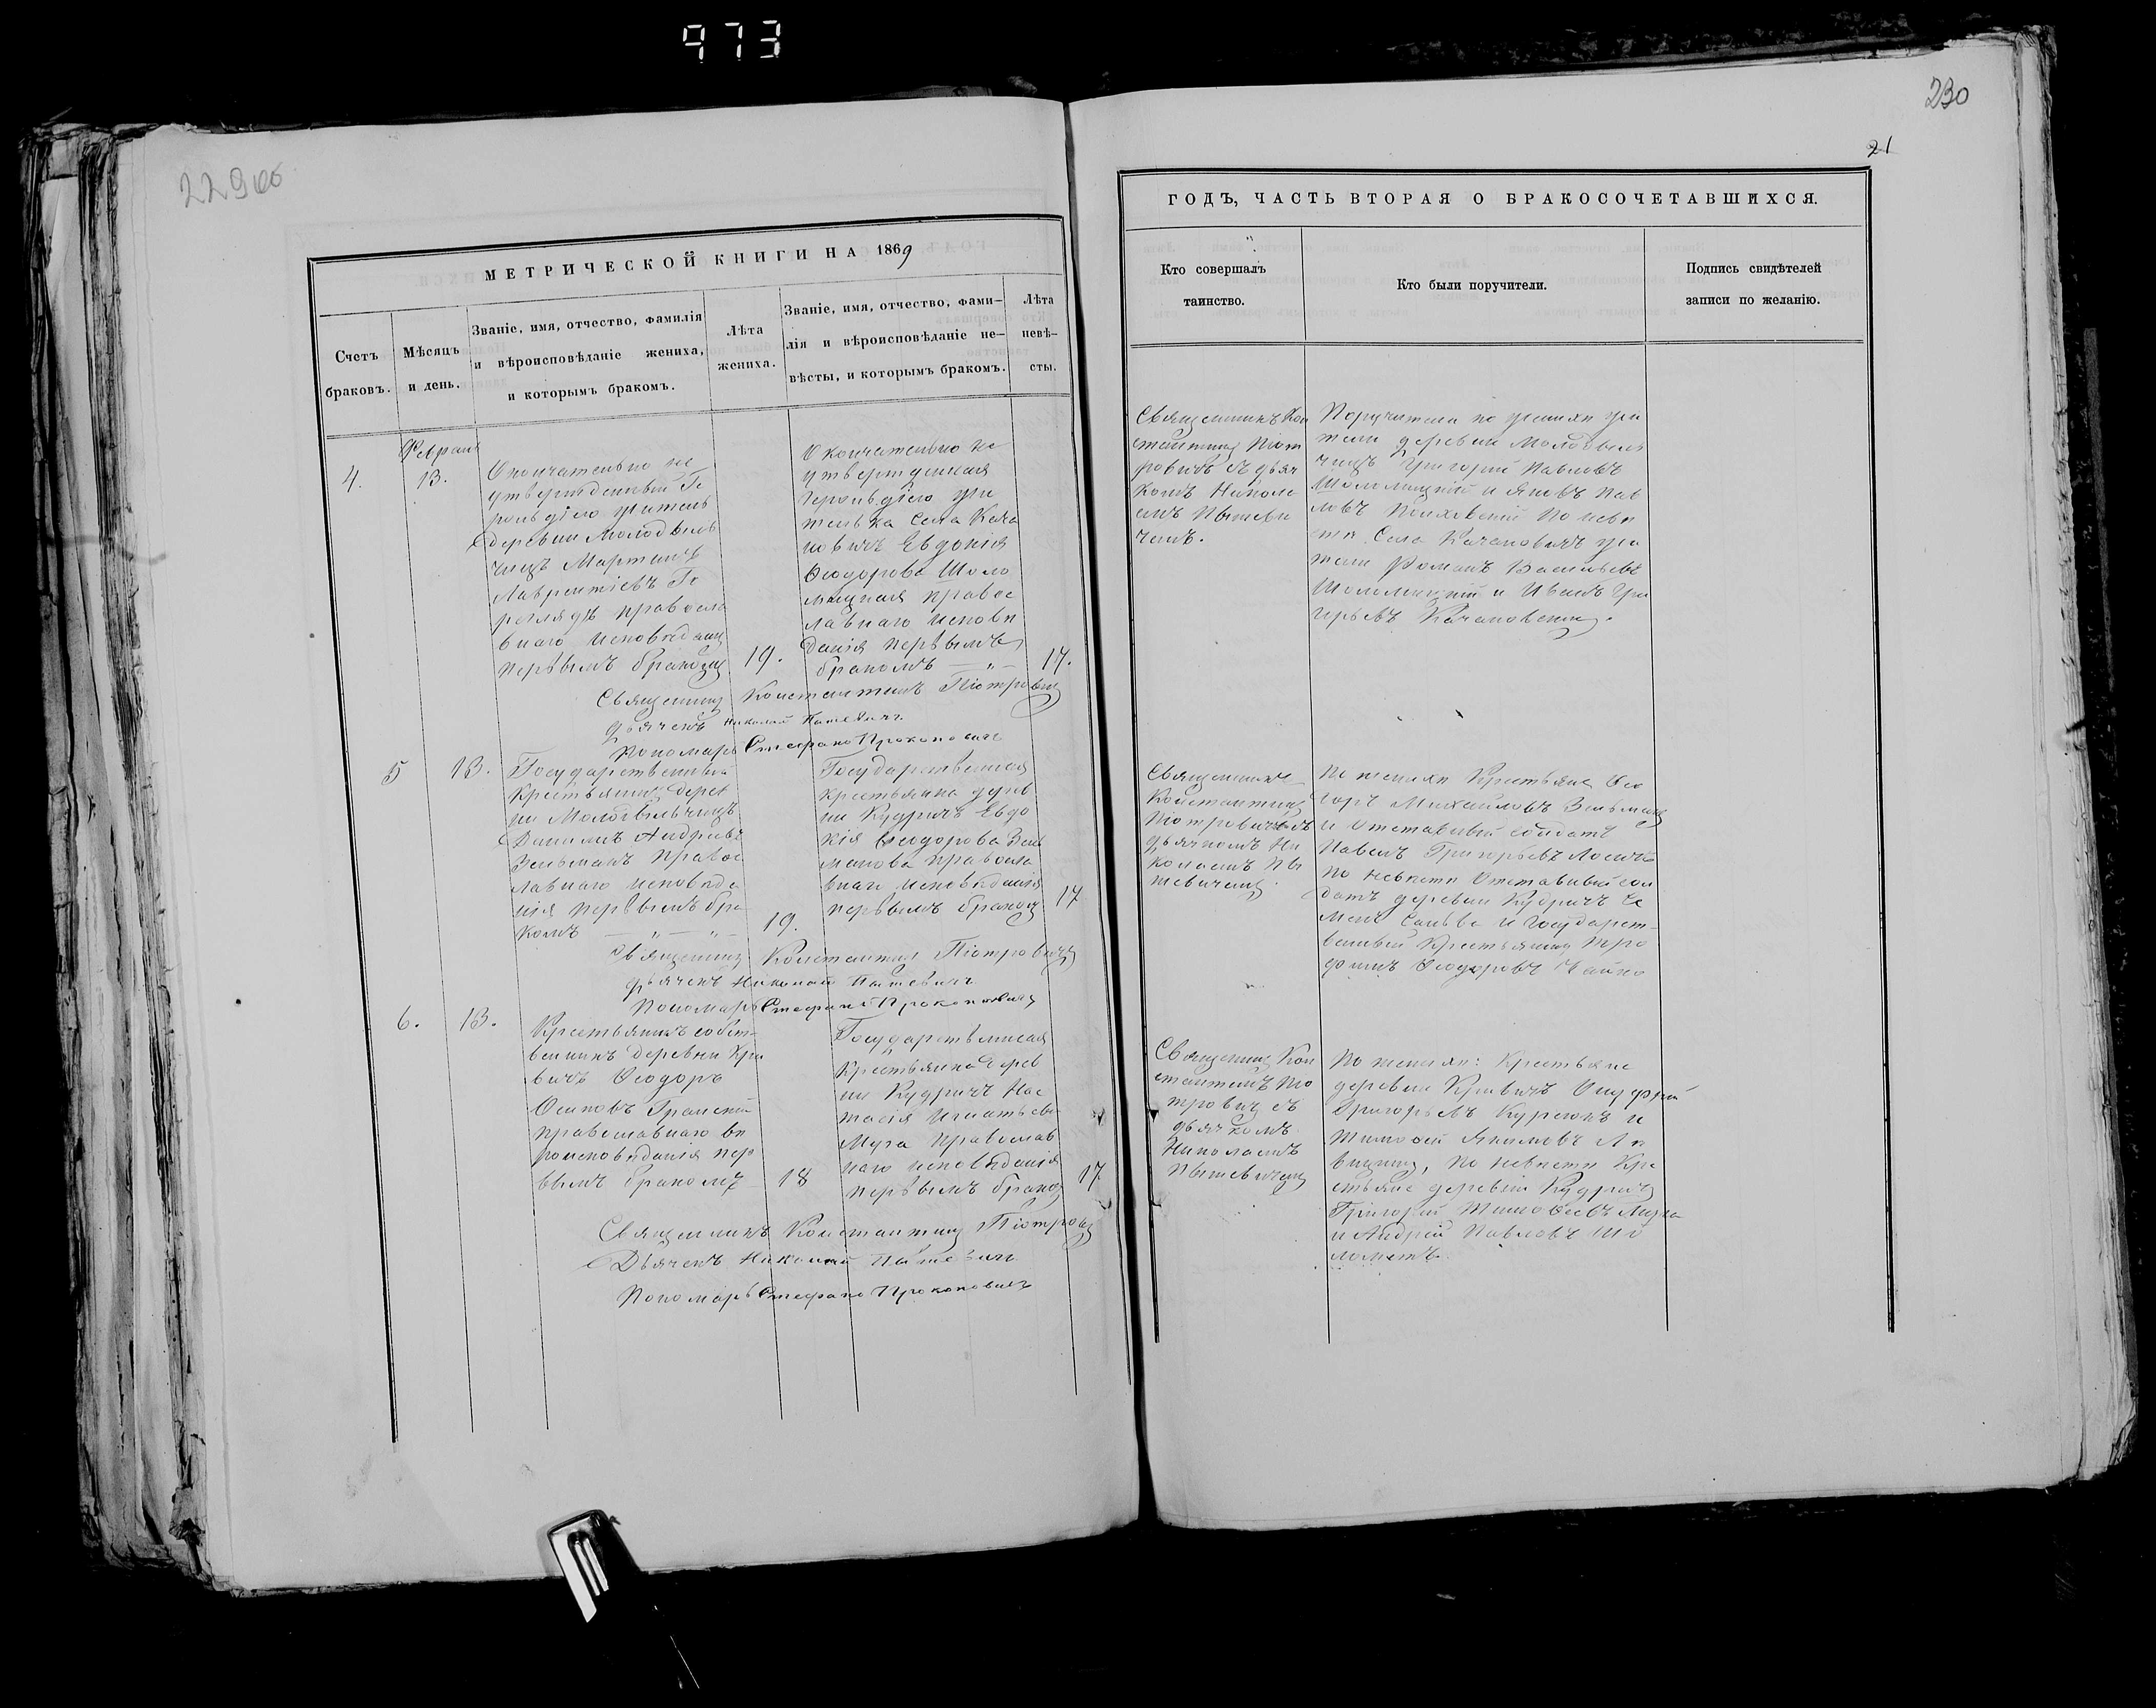 973
229 об
230
21
МЕТРИЧЕСКОЙ КНИГИ НА 1869
Счетъ
браковъ.
Мѣсяцъ
и день.
Званіе, имя, отчество, фамилія
и вѣроисповѣданіе жениха,
и которымъ бракомъ.
Лѣта
жениха.
Званіе, имя, отчество, фами-
лія и вѣроисповѣданіе не-
вѣсты, и которымъ бракомъ.
Лѣта
невѣ-
сты.
4.
Февраль
13.
Окончательно не
утвержденный Ге
рольдіею житель
деревни Молодѣль
чицъ Мартинъ
Лаврентіевъ
православ
внаго исповѣданія
первымъ бракомъ
19.
Окончательно не
утвержденная
Герольдіею жи
телька села Кача
новичъ Евдокія
Ѳеодорова Шоло
мицкая правос
лавнаго исповѣ
данія первымъ
бракомъ — „ —
17.
Священникъ Константинъ Піотровичъ
Дьячекъ Николай Пышевичъ
Пономарь Стефанъ Прокоповичъ
5
13.
Государственный
крестьянинъ дерев
ни Молодѣльчицъ
Даниилъ Андреевъ
Зельманъ правос
лавнаго исповѣда
нія первымъ бра
комъ — „ — „ —
19.
Государственная
крестьянка дерев
ни Кудричъ Евдо
кія Ѳеодорова Зель
манова правосла
внаго исповѣданія
первымъ бракомъ
17
Священникъ Константинъ Піотровичъ
Дьячекъ Николай Пышевичъ
Пономарь Стефанъ Прокоповичъ
6.
13.
Крестьянинъ собст-
венникъ деревни Кри
вичъ Ѳеодоръ
Осиповъ
православнаго вѣ
роисповѣданія пер
вымъ бракомъ
18
Государственная
крестьянка дерев
ни Кудричъ Нас
тасія Игнатьева
Муха православ
наго исповѣданія
первымъ бракомъ
17
Священникъ Константинъ Піотровичъ
Дьячекъ Николай Пышевичъ
Пономарь Стефанъ Прокоповичъ
ГОДЪ, ЧАСТЬ ВТОРАЯ О БРАКОСОЧЕТАВШИХСЯ.
Кто совершалъ
таинство.
Кто были поручители.
Подпись свидѣтелей
записи по желанію.
Священникъ Кон
стантинъ Піот
ровичъ съ дьяч
комъ Никола
емъ Пышеви
чемъ.
Поручители по женихѣ жи
тели деревни Молодѣль
чицъ Григорій Павловъ
Шоломицкій и Яковъ Пав
ловъ по невѣ
стѣ села Качановичъ жи
тели Романъ Васильевъ
Шоломицкій и Иванъ Гри
горьевъ Качановскій.
Священникъ
Константинъ
Піотровичъ съ
дьячкомъ Ни
колаемъ Пы
шевичемъ.
По женихѣ крестьяне Ѳео
доръ Михайловъ Зельманъ
и отставный солдатъ
Павелъ Григорьевъ
по невѣстѣ отставный сол
датъ деревни Кудричъ Се
менъ и государст-
венный крестьянинъ Тро
фимъ Ѳеодоровъ Чайко
Священникъ Кон
стантинъ Піо
тровичъ съ
дьячкомъ
Николаемъ
Пышевичемъ
По женихѣ: крестьяне
деревни Кривичъ Онуфрій
Григорьевъ и
Тимоѳей Якимовъ
по невѣстѣ кре
стьяне деревни Кудричъ
Григорій Тимоѳеевъ Муха
и Андрей Павловъ Шо
ломитъ.